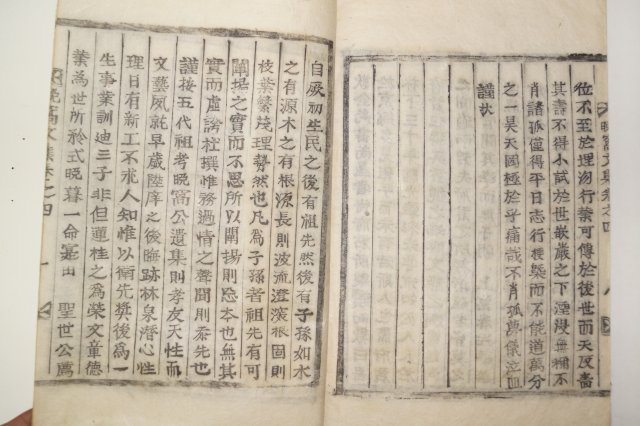 位不至於理汤行業可傳於後世而天反嗇
其壽不得小試於世嵌巖之下湮沒無稱不
肖諸孤僅得平日志行梗槩而不能道萬分
之一昊天罔極於乎痛哉不肖孤萬儀泣血
謹狀
晩窩文集卷之四
自厥初生民之後有祖先然後有子孫如水
之有源木之有根源長則波流澄滾根固則
枝葉繁茂理勢然也凡爲子孫者祖先有可
闡揚之實而不思所以闡揚則忘本也無其
實而虛誇杜撰惟務過情之聲聞則忝先也
謹按五代祖考晩窩公遺集則孝友天性而
文藝夙就早歲陸庠之後晦跡林泉潛心性
理日有新工不求人知惟以衛先奬後爲一
生事業訓迪三子非但蓮桂之爲榮文章德
業爲世所矜式晩暮一命寔由 聖世公薦
晩窩文集卷之四